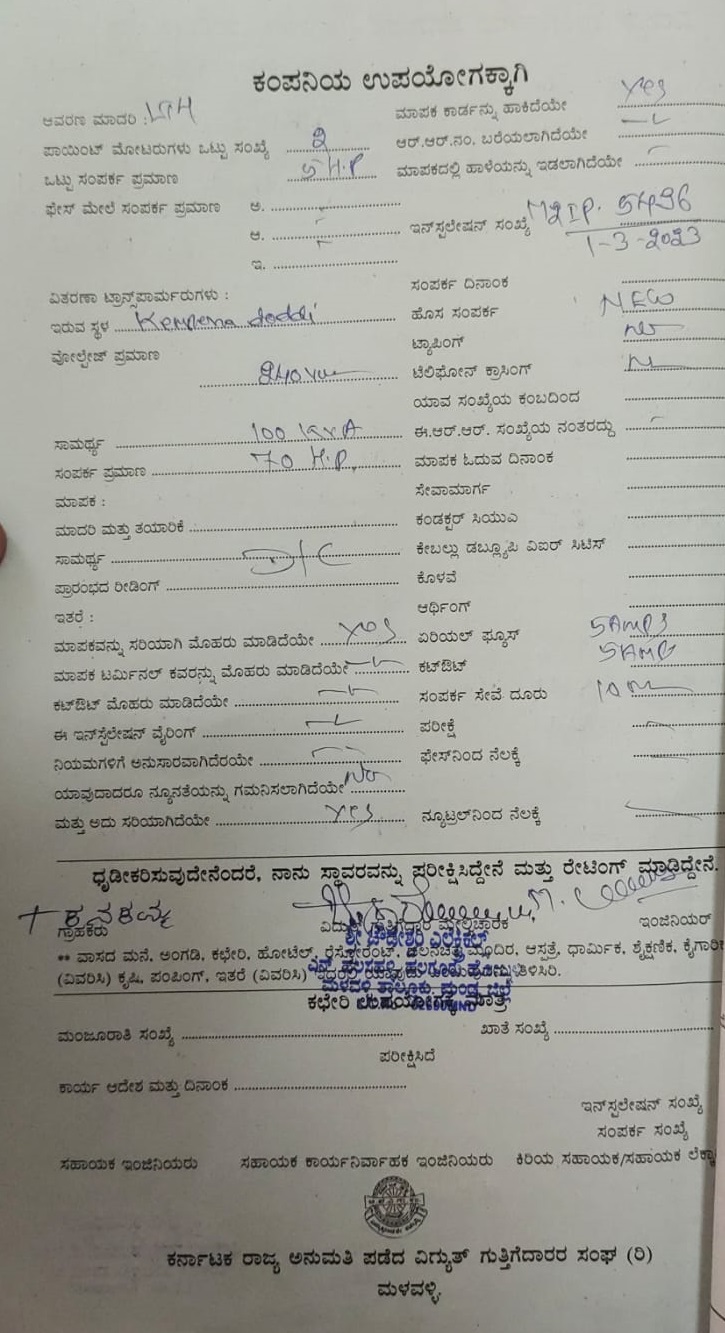 ಕಂಪನಿಯ ಉಪಯೋಗಕ್ಕಾಗಿ
ಆವರಣ ಮಾದರಿ : ಮಾಪಕ ಕಾರ್ಡನ್ನು ಹಾಕಿದೆಯೇ Yes
ಪಾಯಿಂಟ್ ಮೋಟರುಗಳು ಒಟ್ಟು ಸಂಖ್ಯೆ 2 ಆರ್.ಆರ್.ನಂ. ಬರೆಯಲಾಗಿದೆಯೇ
ಒಟ್ಟು ಸಂಪರ್ಕ ಪ್ರಮಾಣ 5 H.P ಮಾಪಕದಲ್ಲಿ ಹಾಳೆಯನ್ನು ಇಡಲಾಗಿದೆಯೇ
ಫೇಸ್ ಮೇಲೆ ಸಂಪರ್ಕ ಪ್ರಮಾಣ ಅ.
ಆ. ಇನ್‌ಸ್ಟಲೇಷನ್ ಸಂಖ್ಯೆ M2IP. 5496
1-3-2023
ಇ.
ವಿತರಣಾ ಟ್ರಾನ್ಸ್‌ಪಾರ್ಮರುಗಳು : ಸಂಪರ್ಕ ದಿನಾಂಕ
ಇರುವ ಸ್ಥಳ doddi ಹೊಸ ಸಂಪರ್ಕ NEW
ವೋಲ್ಟೇಜ್ ಪ್ರಮಾಣ ಟ್ಯಾಪಿಂಗ್
ಟೆಲಿಫೋನ್ ಕ್ರಾಸಿಂಗ್
ಯಾವ ಸಂಖ್ಯೆಯ ಕಂಬದಿಂದ
ಸಾಮರ್ಥ್ಯ 100 KVA ಈ.ಆರ್.ಆರ್. ಸಂಖ್ಯೆಯ ನಂತರದ್ದು
ಸಂಪರ್ಕ ಪ್ರಮಾಣ 70 H.P. ಮಾಪಕ ಓದುವ ದಿನಾಂಕ
ಮಾಪಕ : ಸೇವಾಮಾರ್ಗ
ಮಾದರಿ ಮತ್ತು ತಯಾರಿಕೆ ಕಂಡಕ್ಟರ್ ಸಿಯುಎ
ಸಾಮರ್ಥ್ಯ ಕೇಬಲ್ಲು ಡಬ್ಲ್ಯೂಪಿ ವಿಐರ್ ಸಿಟಿಸ್
ಪ್ರಾರಂಭದ ರೀಡಿಂಗ್ ಕೊಳವೆ
ಇತರೆ : ಆರ್ಥಿಂಗ್
ಮಾಪಕವನ್ನು ಸರಿಯಾಗಿ ಮೊಹರು ಮಾಡಿದೆಯೇ Yes ಏರಿಯಲ್ ಫ್ಯೂಸ್ 5AMPS
ಮಾಪಕ ಟರ್ಮಿನಲ್ ಕವರನ್ನು ಮೊಹರು ಮಾಡಿದೆಯೇ ಕಟ್‌ಔಟ್ 5AMP
ಕಟ್‌ಔಟ್ ಮೊಹರು ಮಾಡಿದೆಯೇ ಸಂಪರ್ಕ ಸೇವೆ ದೂರು 10 m
ಈ ಇನ್‌ಸ್ಟೆಲೇಷನ್ ವೈರಿಂಗ್ ಪರೀಕ್ಷೆ
ನಿಯಮಗಳಿಗೆ ಅನುಸಾರವಾಗಿದೆರಯೇ ಫೇಸ್‌ನಿಂದ ನೆಲಕ್ಕೆ
ಯಾವುದಾದರೂ ನ್ಯೂನತೆಯನ್ನು ಗಮನಿಸಲಾಗಿದೆಯೇ No
ಮತ್ತು ಅದು ಸರಿಯಾಗಿದೆಯೇ Yes ನ್ಯೂಟ್ರಲ್‌ನಿಂದ ನೆಲಕ್ಕೆ
ಧೃಡೀಕರಿಸುವುದೇನೆಂದರೆ, ನಾನು ಸ್ಥಾವರವನ್ನು ಪರೀಕ್ಷಿಸಿದ್ದೇನೆ ಮತ್ತು ರೇಟಿಂಗ್ ಮಾಡಿದ್ದೇನೆ.
ಗ್ರಾಹಕರು ವಿದ್ಯುತ್ ಗುತ್ತಿಗೆದಾರ ಮೇಲ್ವಿಚಾರಕ ಇಂಜಿನಿಯರ್
** ವಾಸದ ಮನೆ, ಅಂಗಡಿ, ಕಛೇರಿ, ಹೋಟೆಲ್, ರೆಸ್ಟೋರೆಂಟ್, ಚಲನಚಿತ್ರ ಮಂದಿರ, ಆಸ್ಪತ್ರೆ, ಧಾರ್ಮಿಕ, ಶೈಕ್ಷಣಿಕ,
(ವಿವರಿಸಿ) ಕೃಷಿ, ಪಂಪಿಂಗ್, ಇತರೆ (ವಿವರಿಸಿ)
ಮಳವಳ್ಳಿ ತಾಲ್ಲೂಕು, ಮಂಡ್ಯ ಜಿಲ್ಲೆ
ಕಛೇರಿ ಉಪಯೋಗಕ್ಕೆ ಮಾತ್ರ
ಮಂಜೂರಾತಿ ಸಂಖ್ಯೆ ಖಾತೆ ಸಂಖ್ಯೆ
ಪರೀಕ್ಷಿಸಿದೆ
ಕಾರ್ಯ ಆದೇಶ ಮತ್ತು ದಿನಾಂಕ
ಇನ್‌ಸ್ಟಲೇಷನ್ ಸಂಖ್ಯೆ
ಸಂಪರ್ಕ ಸಂಖ್ಯೆ
ಸಹಾಯಕ ಇಂಜಿನಿಯರು ಸಹಾಯಕ ಕಾರ್ಯನಿರ್ವಾಹಕ ಇಂಜಿನಿಯರು ಕಿರಿಯ ಸಹಾಯಕ/ಸಹಾಯಕ
ಕರ್ನಾಟಕ ರಾಜ್ಯ ಅನುಮತಿ ಪಡೆದ ವಿಗ್ಯುತ್ ಗುತ್ತಿಗೆದಾರರ ಸಂಘ (ರಿ)
ಮಳವಳ್ಳಿ.